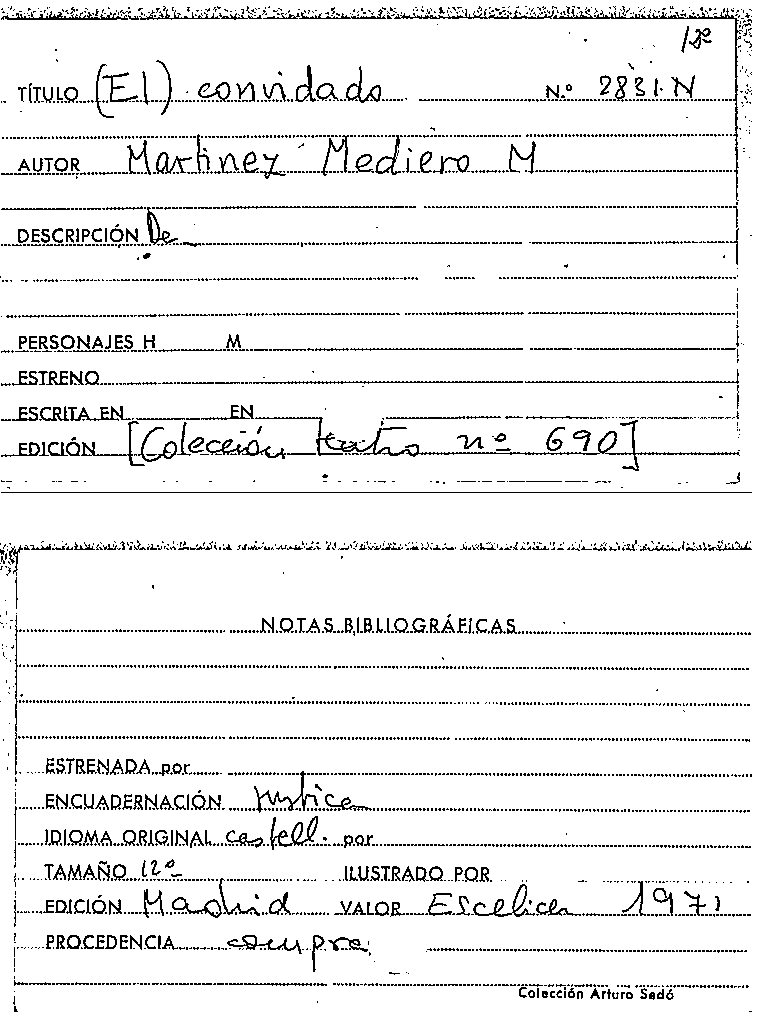 12º
TÍTULO (El) convidado N.º 2831-N
AUTOR Martinez Mediero M
DESCRIPCIÓN De
PERSONAJES H M
ESTRENO
ESCRITA EN EN
EDICIÓN [Colección teatro nº 690]
NOTAS BIBLIOGRÁFICAS
ESTRENADA por
ENCUADERNACIÓN rustica
IDIOMA ORIGINAL castell. por
TAMAÑO 12º ILUSTRADO POR
EDICIÓN Madrid VALOR Escelicer 1971
PROCEDENCIA compra
Colección Arturo Sedó